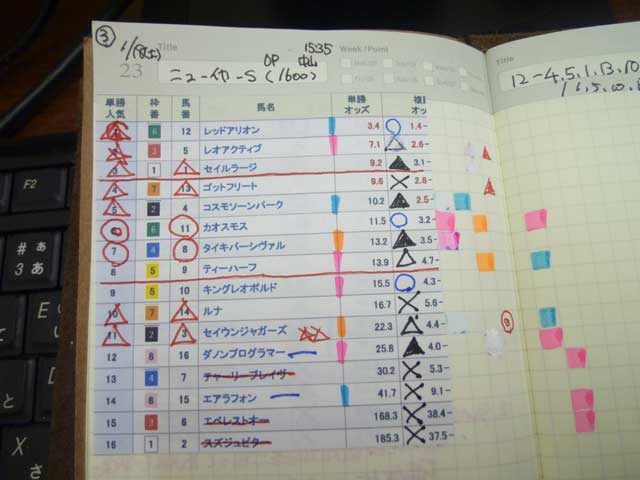 ③
1/19(土)
Title
OP 中山
15:35
Week / Point
23
ニューイヤーS (1600)
単勝人気 枠番 馬番 馬名 単勝オッズ 複勝
6 12 レッドアリオン 3.4 1.4-
3 5 レオアクティブ 7.1 2.6-
3 1 1 セイルラージ 9.2 3.1-
4 7 13 ゴットフリート 9.6 2.8-
5 2 4 コスモソーンパーク 10.2 2.5-
6 11 カオスモス 11.5 3.2-
7 4 8 タイキパーシヴァル 13.2 3.5-
8 5 9 ティーハーフ 13.9 4.7-
9 5 10 キングレオポルド 15.5 4.3-
10 7 14 ルナ 16.7 5.6-
11 2 3 セイウンジャガーズ 22.3 4.4-
12 8 16 ダノンプログラマー 25.8 4.0-
13 4 7 チャーリーブレイヴ 30.2 5.3-
14 8 15 エアラフォン 41.7 9.1-
15 3 6 エベレストオー 168.3 38.4-
16 1 2 スズジュピター 185.3 37.5-
Title
12-4,5,1,13,10
F2
# ぁ
3 あ
と
X
さ